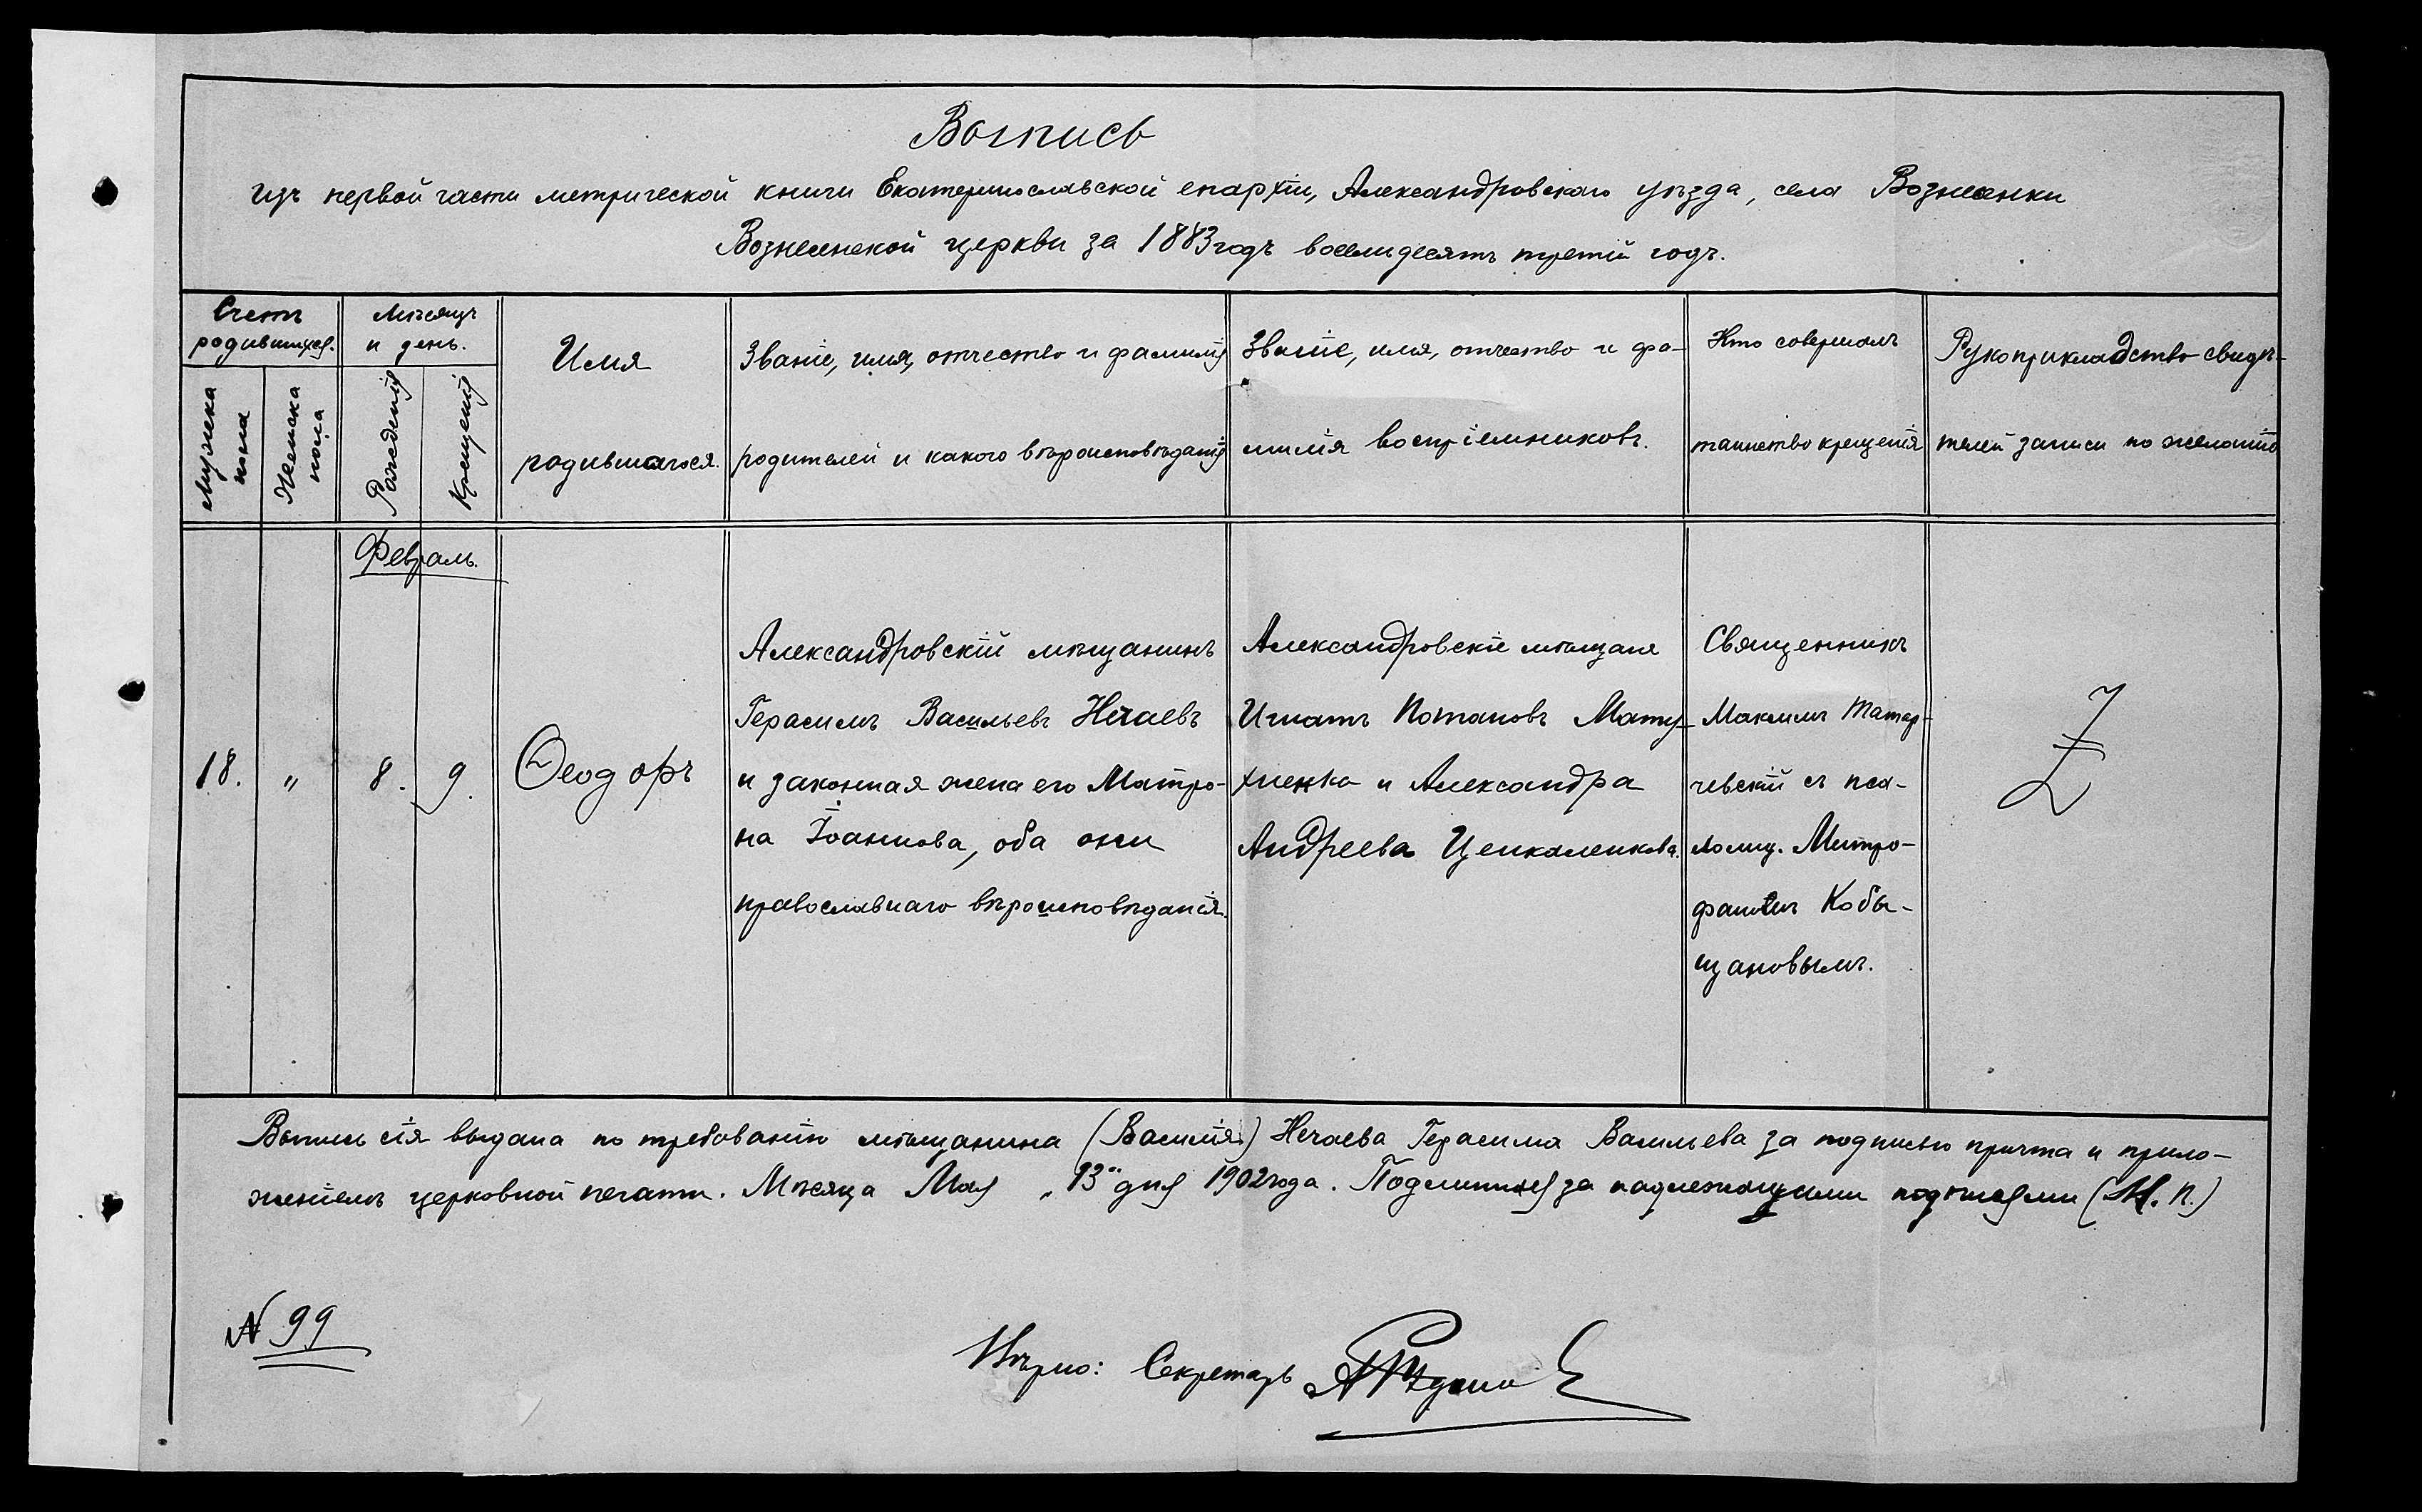 Выпись
изъ первой части метрической книги Екатеринославской епархіи, Александровскаго уѣзда, села Вознесенки
Вознесенской церкви за 1883 годъ восемидесятъ третій годъ.
Счетъ
родившихся.
Мужска
пола
Женска
пола
Мѣсяцъ
и день.
Рожденія
Крещенія
Имя
родившагося.
Званіе, имя, отчество и фамилія
родителей и какого вѣроисповѣданія
Званіе, имя, отчество и фа-
милія воспріемниковъ.
Кто совершалъ
таинство крещенія
Рукоприкладство свидѣ-
телей записи по желанію
Февраль.
18.
"
8.
9.
Ѳеодоръ
Александровскій мѣщанинъ
Герасимъ Васильевъ Нечаевъ
и законная жена его Матро-
на Іоаннова, оба они
православнаго вѣроисповѣданія.
Александровскіе мѣщане
Игнатъ Потаповъ Мату-
хненко и Александра
Андреева Цепкаленкова.
Священникъ
Максимъ Татар-
чевскій съ пса-
ломщ. Митро-
фаномъ Кобы-
щановымъ.
Выпись сія выдана по требованію мѣщанина (Василія) Нечаева Герасима Васильева за подписью причта и прило-
женіемъ церковной печати. Мѣсяца Мая „13" дня 1902 года. Подлинная за надлежащими подписями (М. П.)
№ 99
Вѣрно: Секретарь